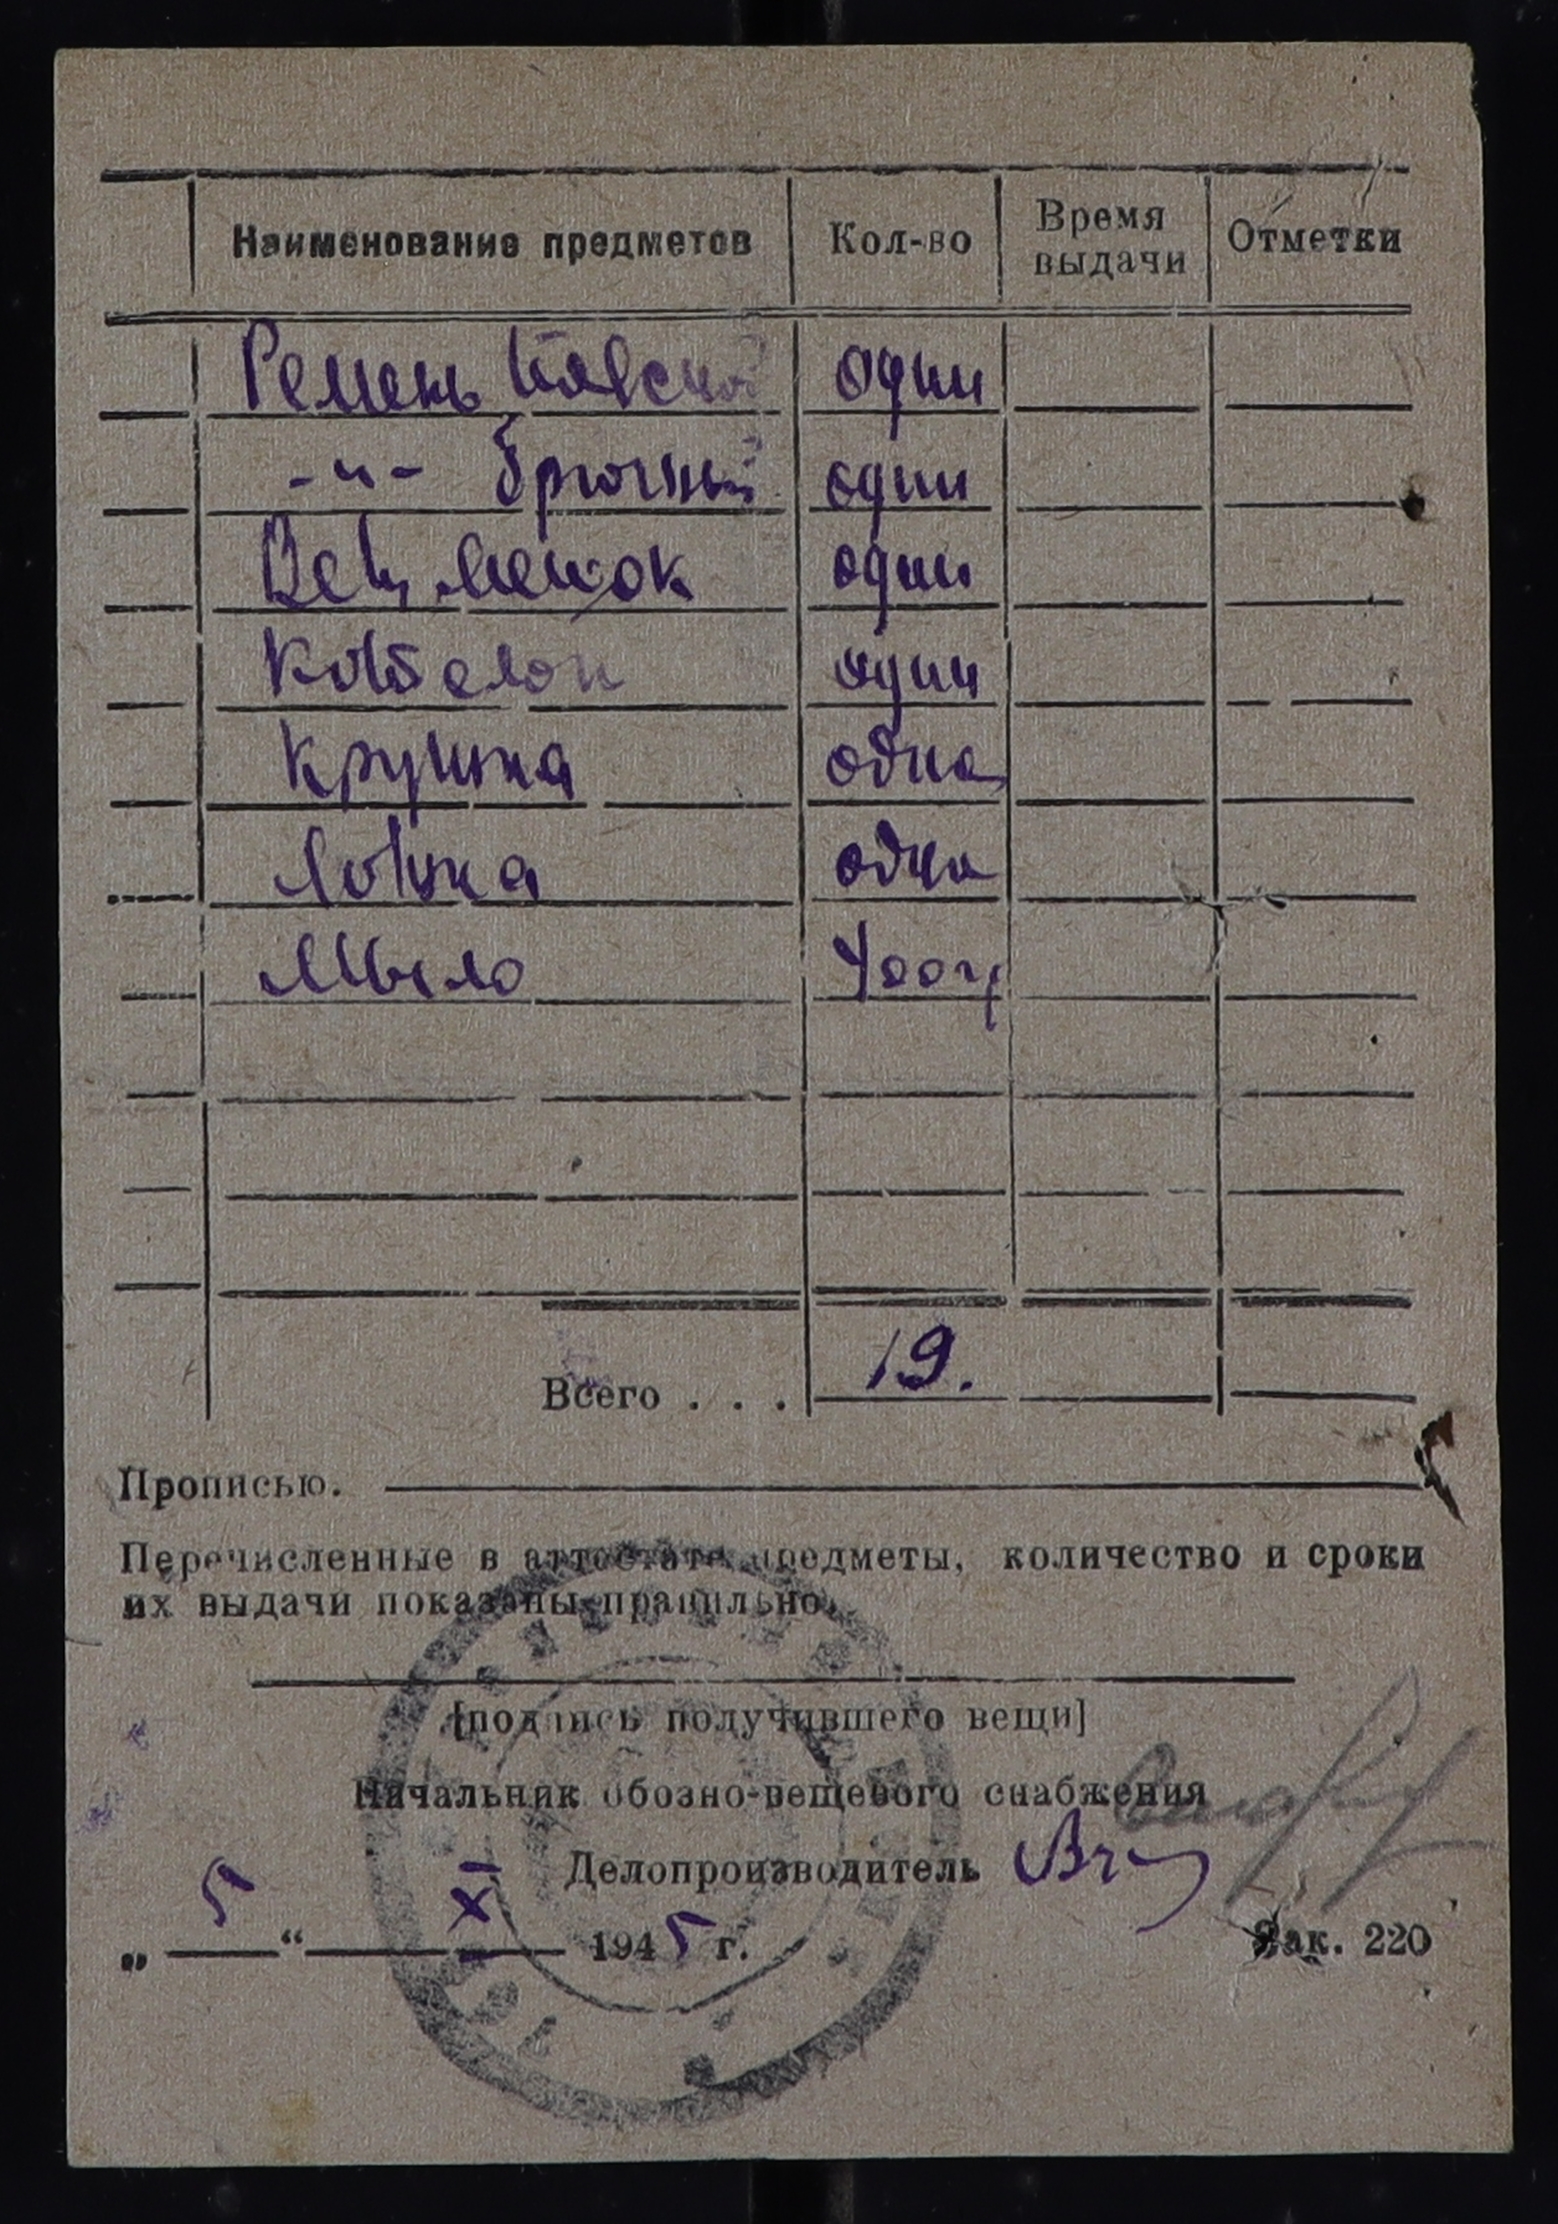 Наименование предметов Кол-во Время выдачи Отметки
Ремень поясной один
-"- брючный один
Вещ. мешок один
Котелок один
Кружка одна
Ложка одна
Мыло 400 гр
Всего . . . 19.
Прописью.
Перечисленные в аттестате предметы, количество и сроки
их выдачи показаны правильно.
[подпись получившего вещи]
Начальник обозно-вещевого снабжения
Делопроизводитель
„ 5 “ X 1945 г.
Зак. 220